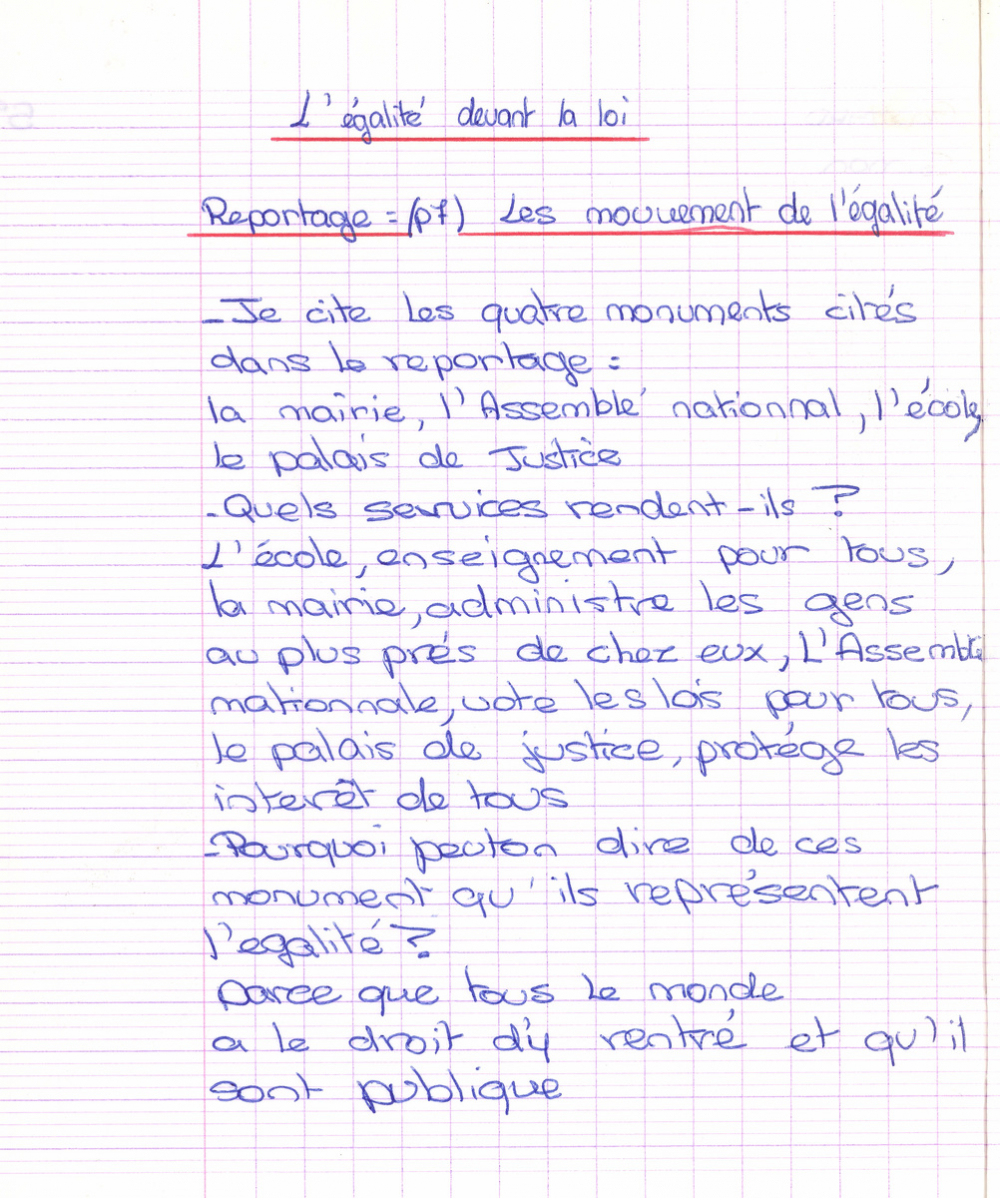 L'égalité devant la loi
Reportage : (p7) Les mouvement de l'égalité
- Je cite les quatre monuments cités
dans le reportage :
la mairie, l'Assemblé nationnal, l'école,
le palais de Justice
- Quels services rendent-ils ?
L'école, enseignement pour tous,
la mairie, administre les gens
au plus prés de chez eux, L'Assemblé
nationnale, vote les lois pour tous,
le palais de justice, protége les
interêt de tous
- Pourquoi peuton dire de ces
monument qu'ils représentent
l'egalité ?
parce que tous le monde
a le droit d'y rentré et qu'il
sont publique